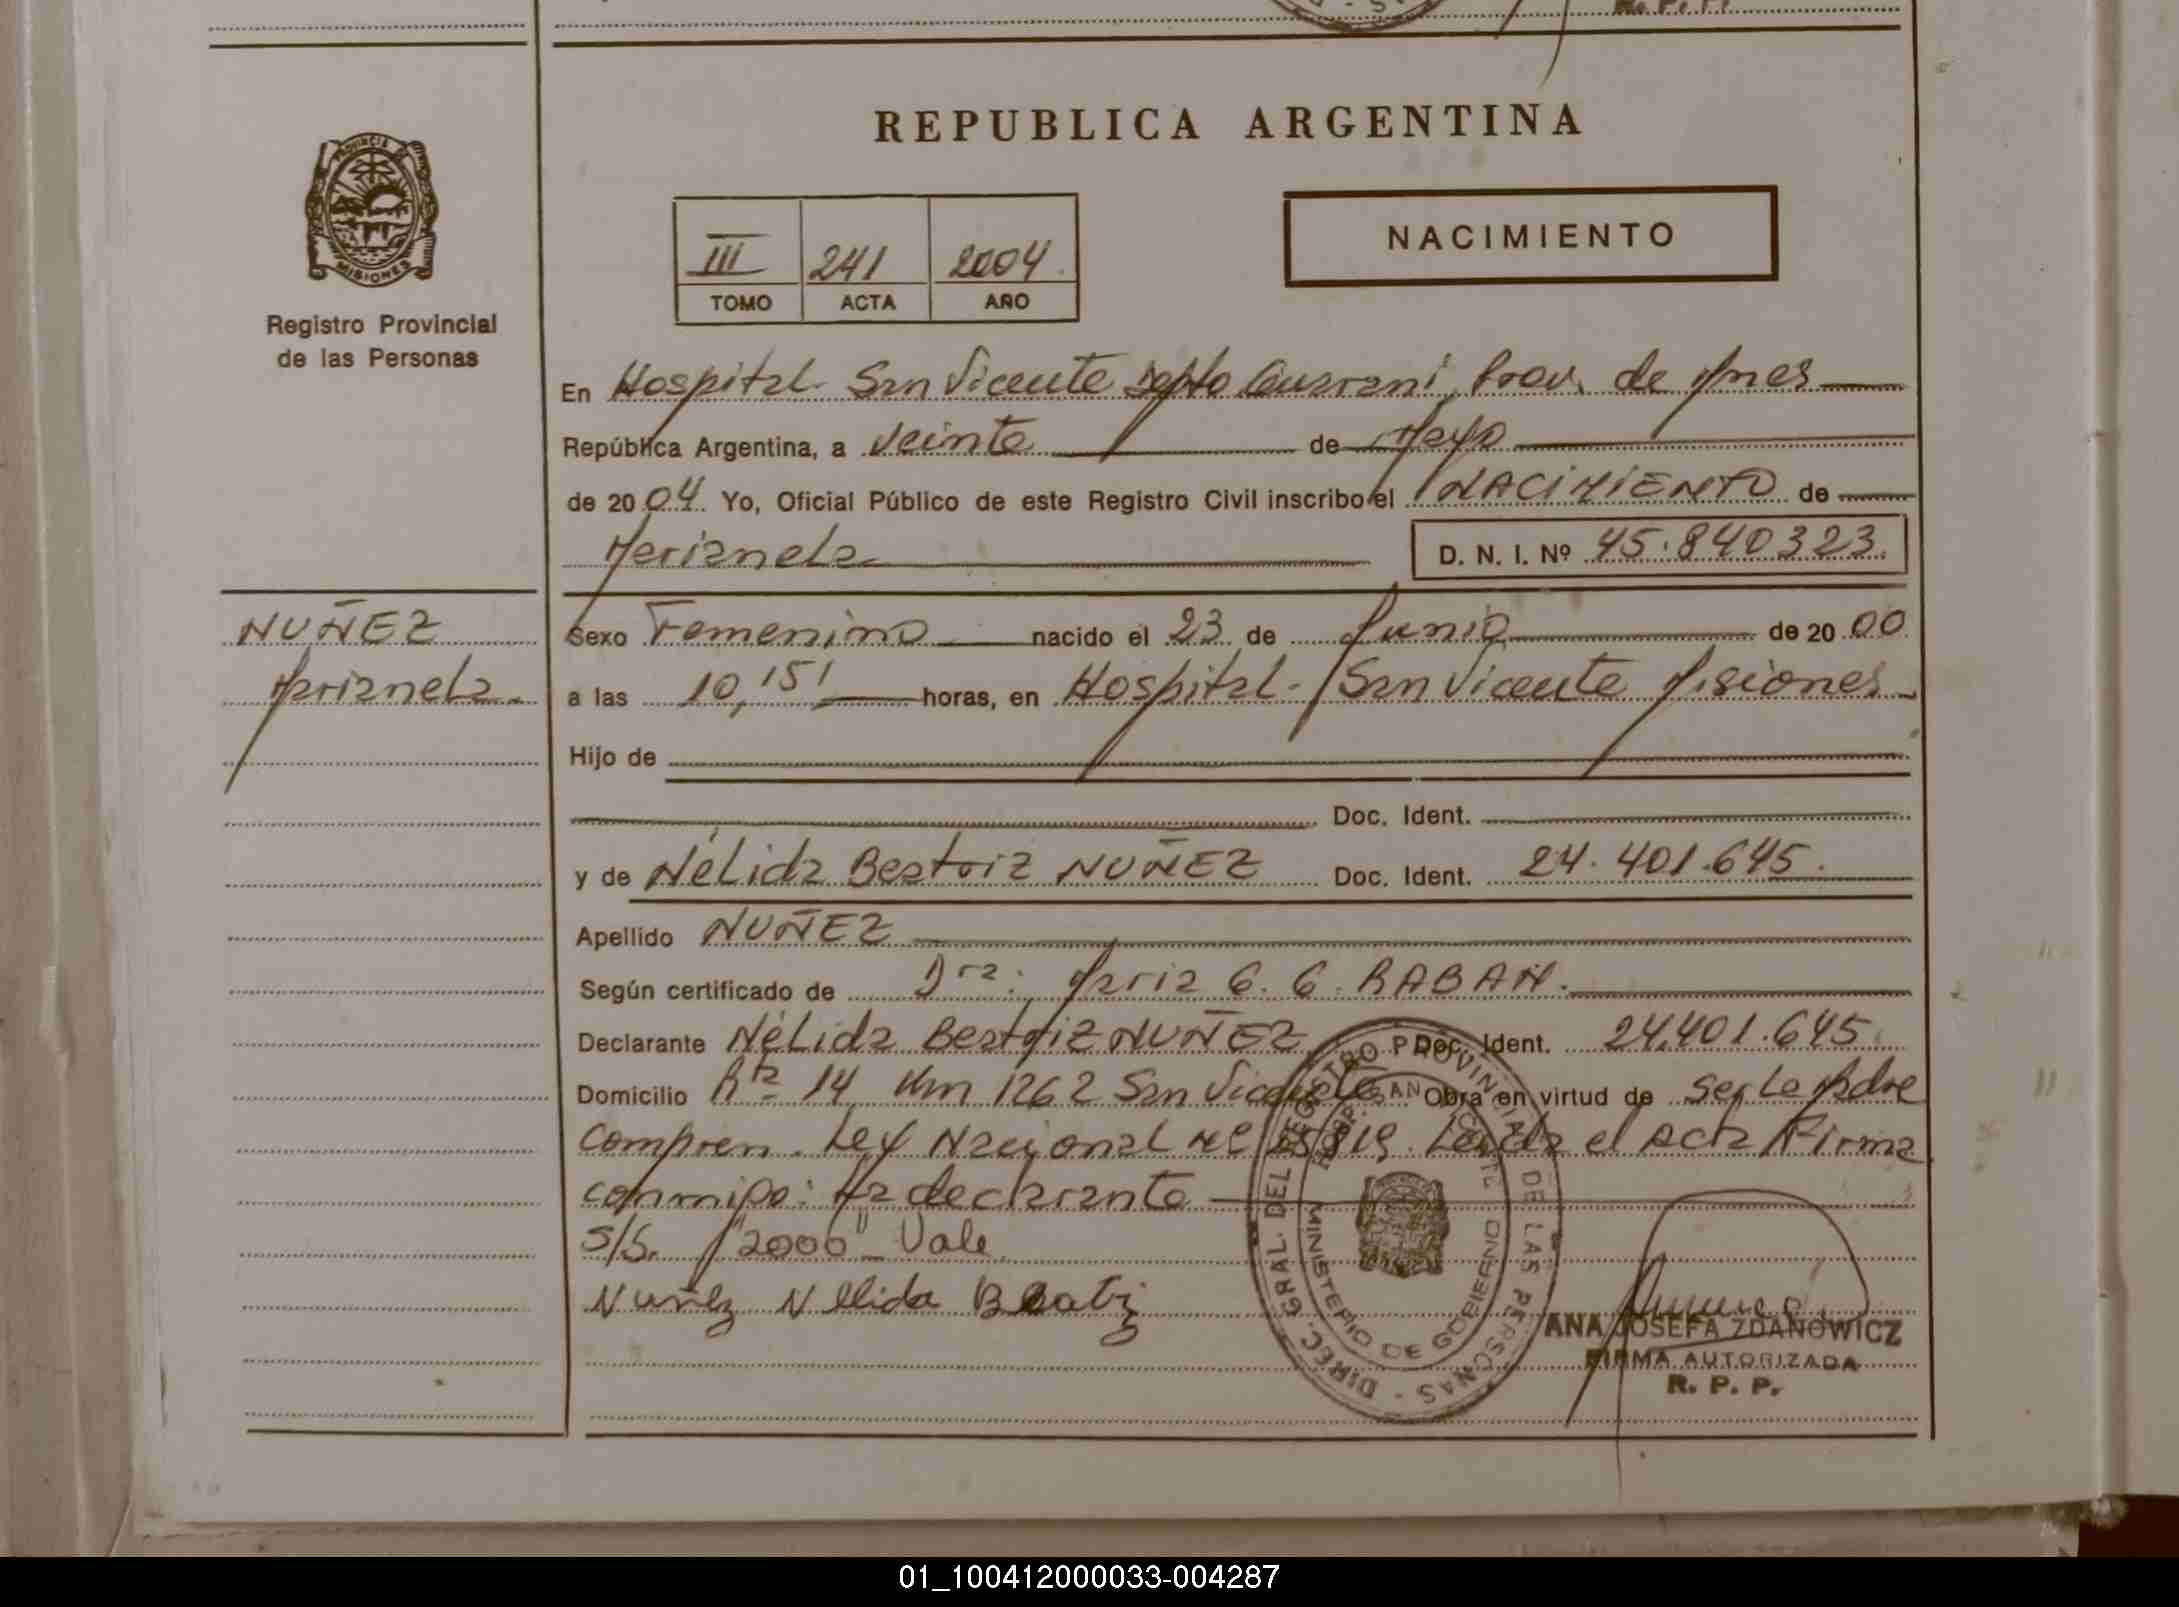 R. P. P.
REPUBLICA ARGENTINA
PROVINCIA DE
MISIONES
Registro Provincial
de las Personas
III 241 2004
TOMO ACTA AÑO
NACIMIENTO
En Hospital San Vicente Depto Guarani Prov. de Mnes
República Argentina, a veinte de Mayo
de 2004. Yo, Oficial Público de este Registro Civil inscribo el NACIMIENTO de
Marianela
D. N. I. Nº 45.840323.
NUÑEZ
Marianela.
Sexo Femenino nacido el 23 de Junio de 2000
a las 10,15' horas, en Hospital - San Vicente Misiones
Hijo de
Doc. Ident.
y de Nélida Beatriz NUÑEZ Doc. Ident. 24.401.645.
Apellido NUÑEZ
Según certificado de Dra: Maria G. G. RABAN.
Declarante Nélida Beatriz NUÑEZ Doc. Ident. 24.401.645.
Domicilio Rta 14 Km 1262 San Vicente Obra en virtud de ser La Madre
Compren. Ley Nacional Nº 25819. Leida el Acta Firma
conmigo: La declarante
S/S. "2000" Vale
Nuñez Nllida Beatiz
DIREC. GRAL. DEL REGISTRO PROVINCIAL DE LAS PERSONAS -
HOSP. SAN VICENTE
MINISTERIO DE GOBIERNO
ANA JOSEFA ZDANOWICZ
FIRMA AUTORIZADA
R. P. P.
01_100412000033-004287